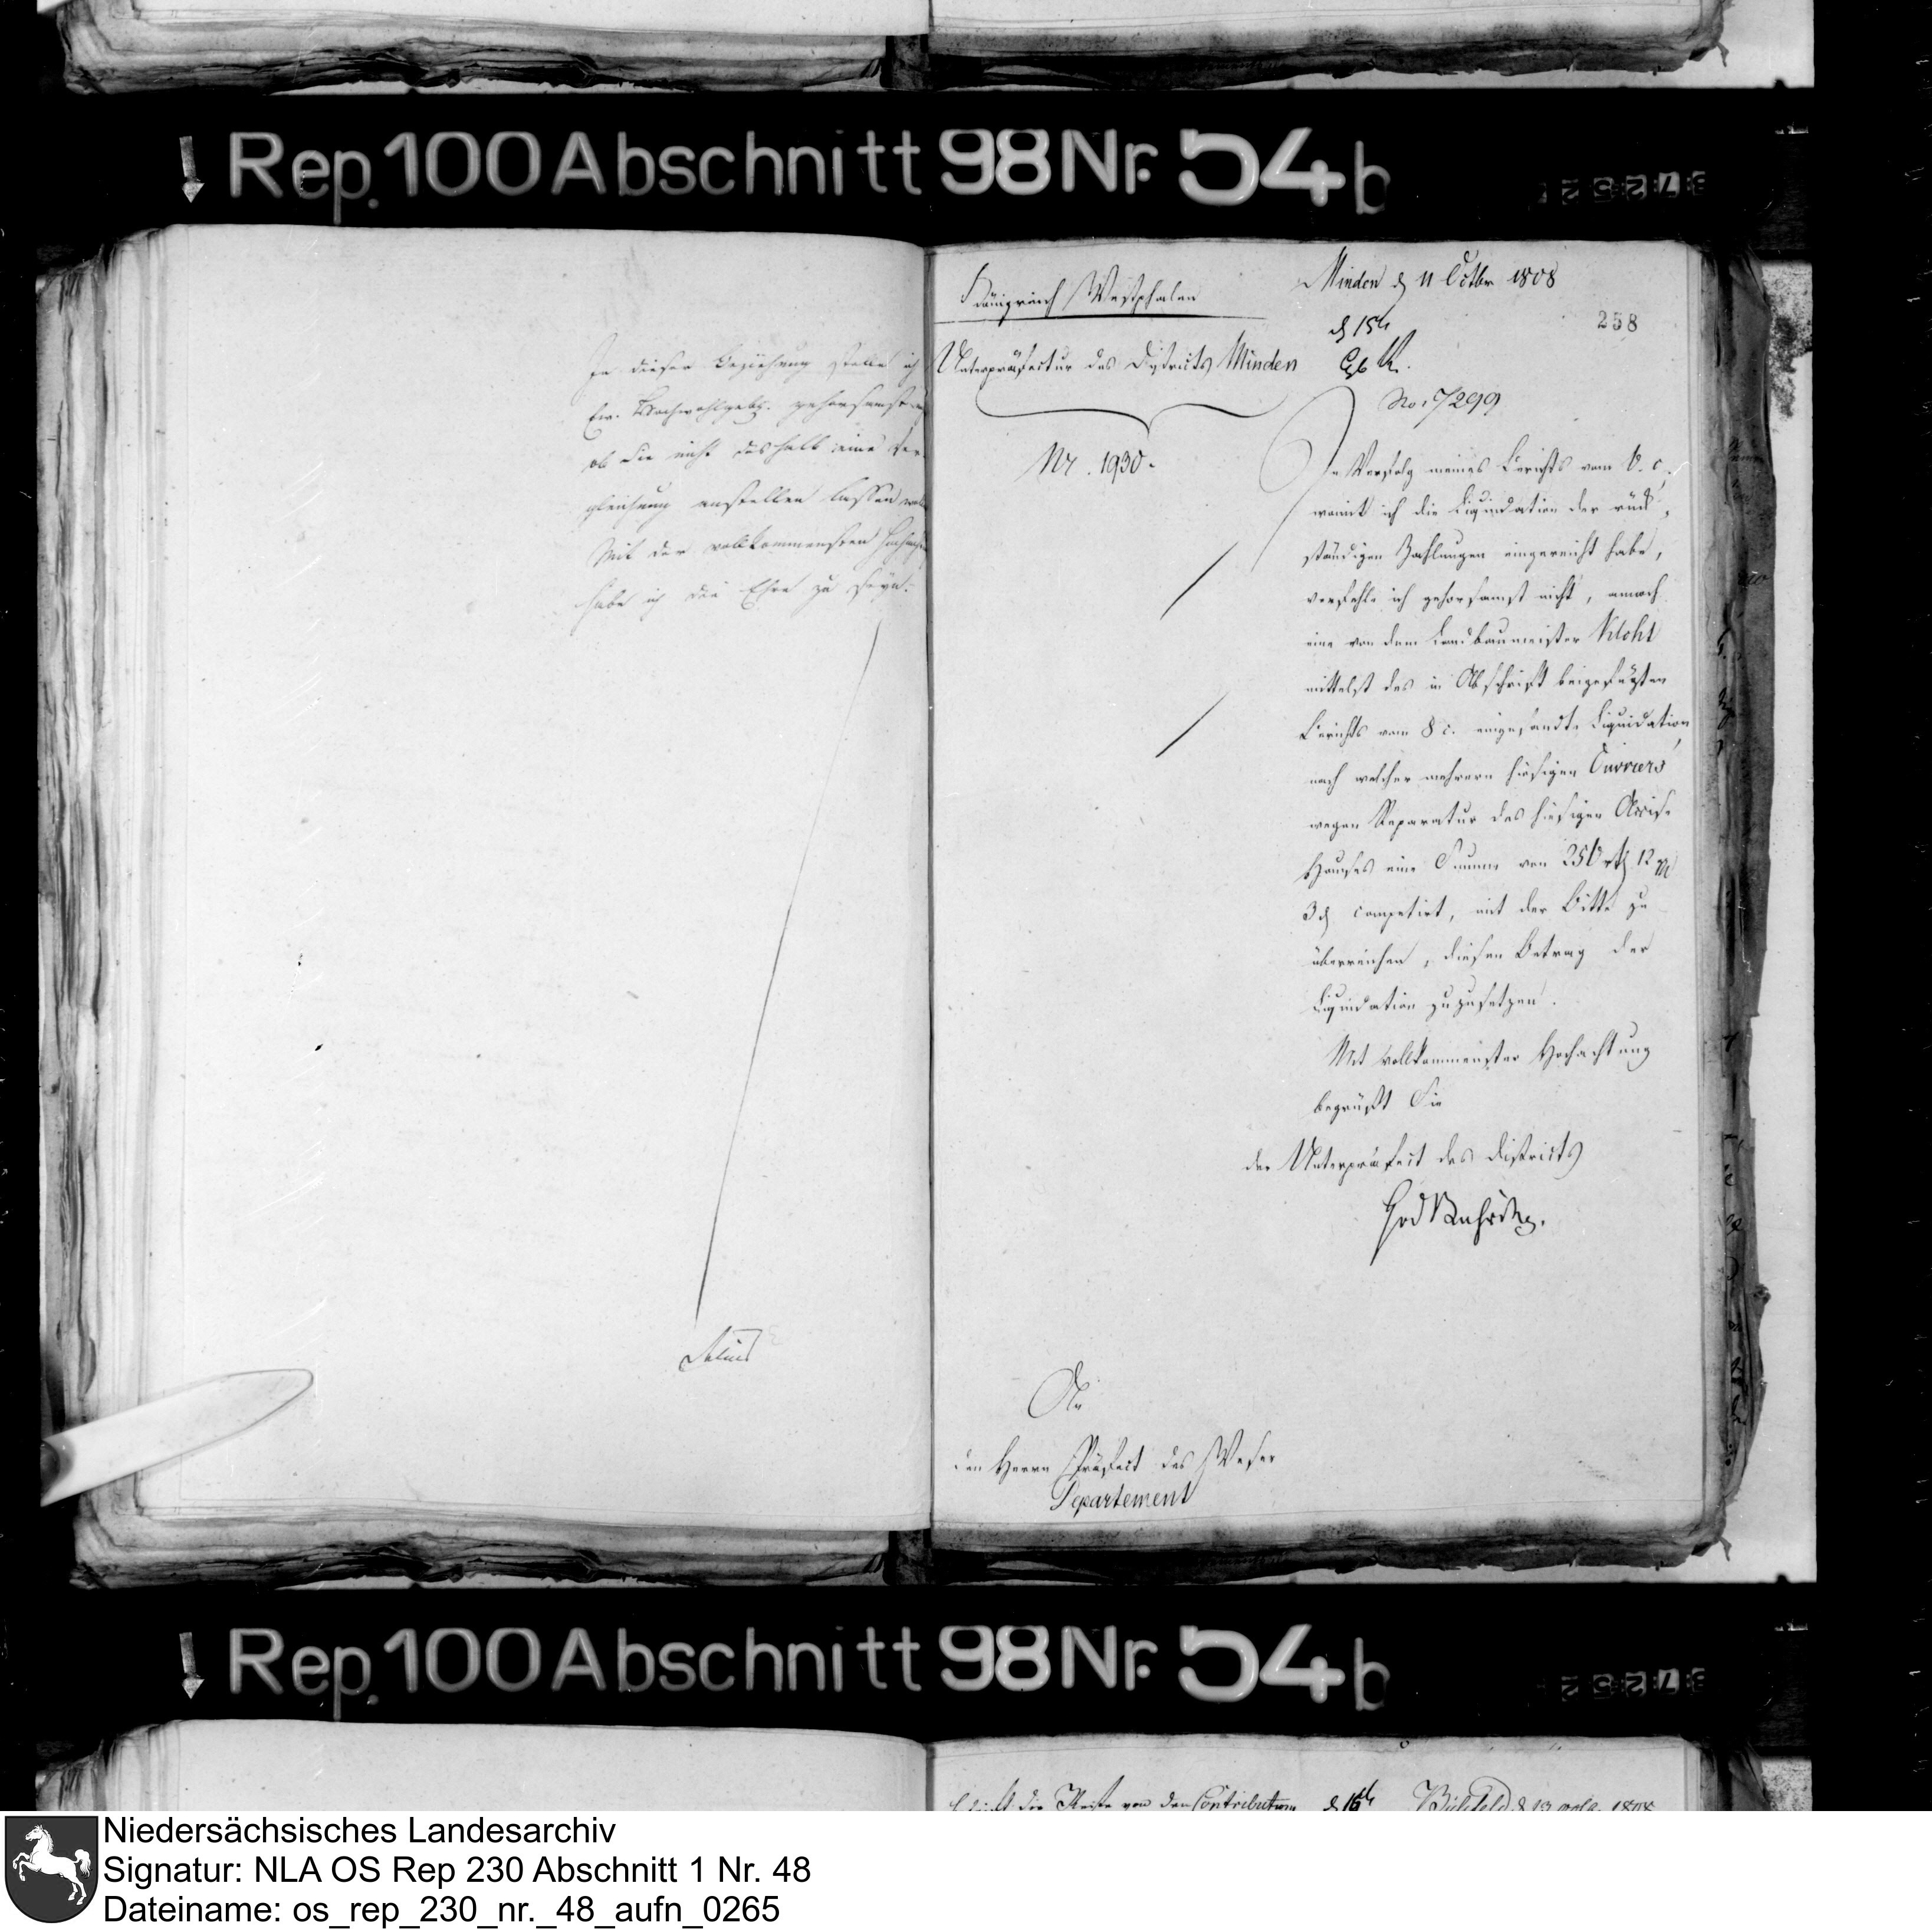 Rep. 100 Abschnitt 98 Nr. 54 b
In dieser Beziehung stelle ich
Ew. Hochwohlgeb. gehorsamst
ob Sie nicht deshalb eine Ver-
gleichung anstellen lassen
Mit der vollkommensten
habe ich die Ehre zu seyn.
Königreich Westphalen
Unterpräfectur des Districts Minden
Nr. 1930.
Minden d 11 Octbr 1808
258
d 15
No. 7299
In Verfolg meines Berichts vom 6. c.
womit ich die Liquidation der rück-
ständigen Zahlungen eingereicht habe,
verfehle ich gehorsamst nicht, annoch
eine von dem Landbaumeister Kloht
mittelst des in Abschrift beigefügten
Berichts vom 8 c. eingesandte Liquidation,
nach welcher mehrern hiesigen Ouvriers
wegen Reparatur des hiesigen Accise
Hauses eine Summe von 250 rth 12
3 d competirt, mit der Bitte zu
überreichen, diesen Betrag der
Liquidation zuzusetzen.
Mit vollkommenster Hochachtung
begrüßt Sie
der Unterpräfect des Districts
An
den Herrn Präfect des Weser
Departement
Rep. 100 Abschnitt 98 Nr. 54 b
Niedersächsisches Landesarchiv
Signatur: NLA OS Rep 230 Abschnitt 1 Nr. 48
Dateiname: os_rep_230_nr._48_aufn_0265